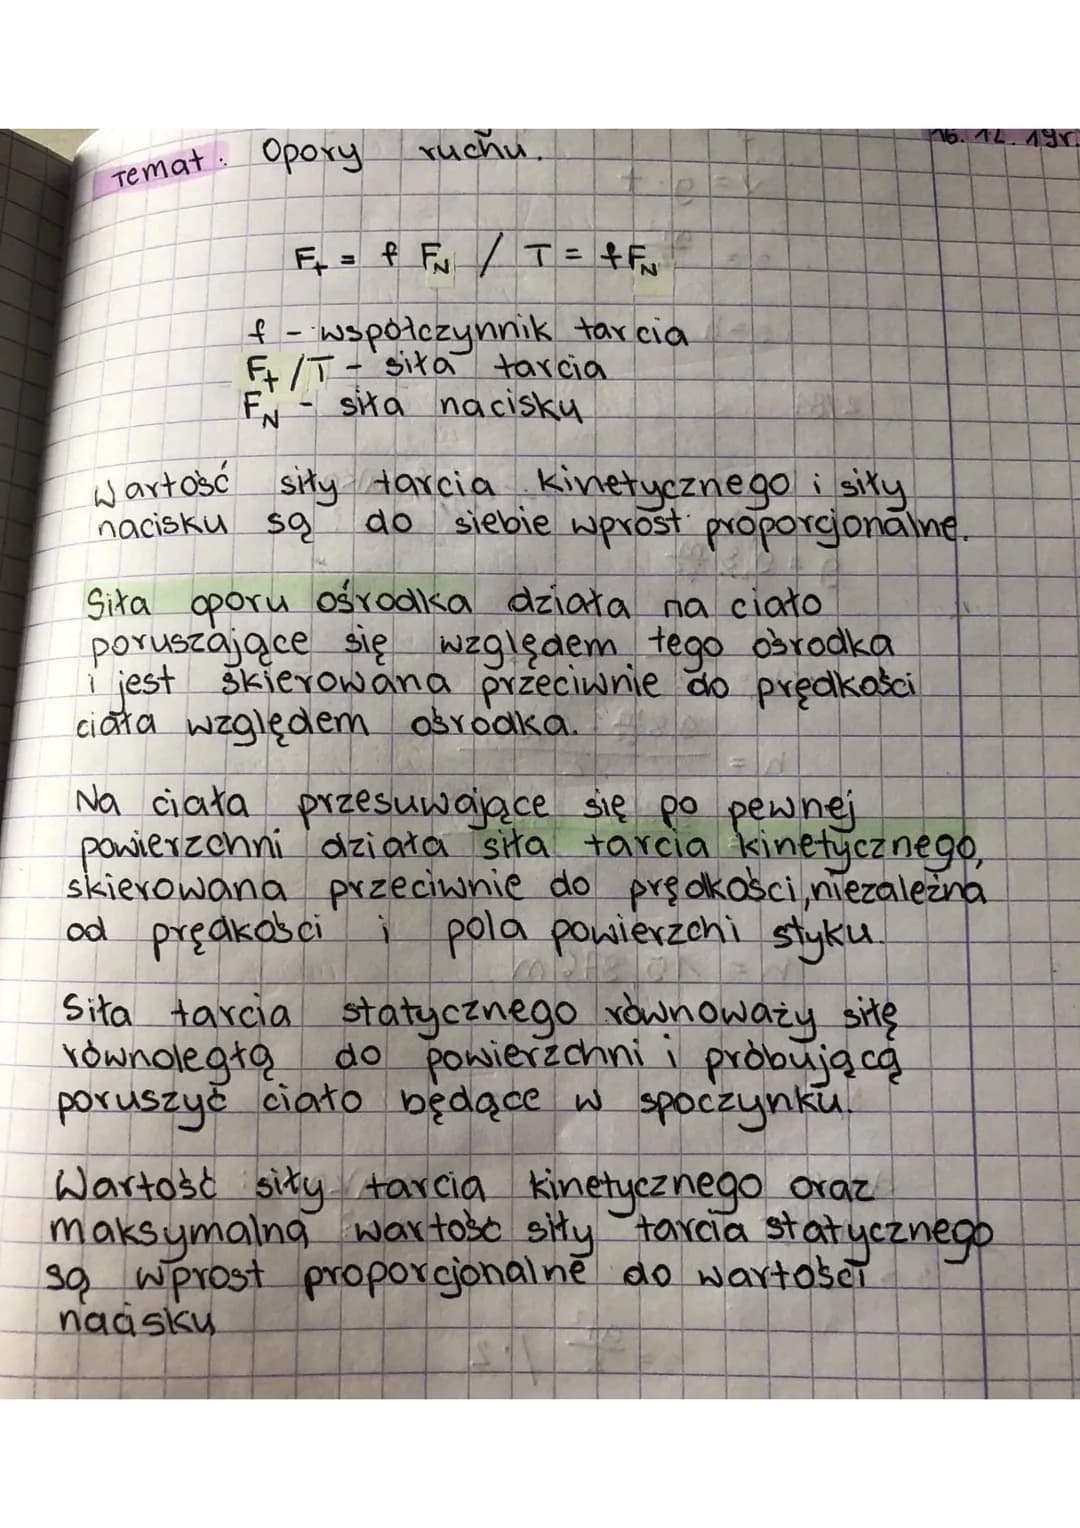 16. 12. 19r.
Temat: Opory ruchu.
Ft = f FN / T = fFN
f - współczynnik tarcia
Ft/T - siła tarcia
FN - siła nacisku
Wartość siły tarcia kinetycznego i siły
nacisku są do siebie wprost proporcjonalne.
Siła oporu ośrodka działa na ciało
poruszające się względem tego ośrodka
i jest skierowana przeciwnie do prędkości
ciała względem ośrodka.
Na ciała przesuwające się po pewnej
powierzchni działa siła tarcia kinetycznego,
skierowana przeciwnie do prędkości, niezależna
od prędkości i pola powierzchi styku.
Siła tarcia statycznego równoważy siłę
równoległą do powierzchni i próbującą
poruszyć ciało będące w spoczynku.
Wartość siły tarcia kinetycznego oraz
maksymalną wartość siły tarcia statycznego
są wprost proporcjonalne do wartości
nacisku